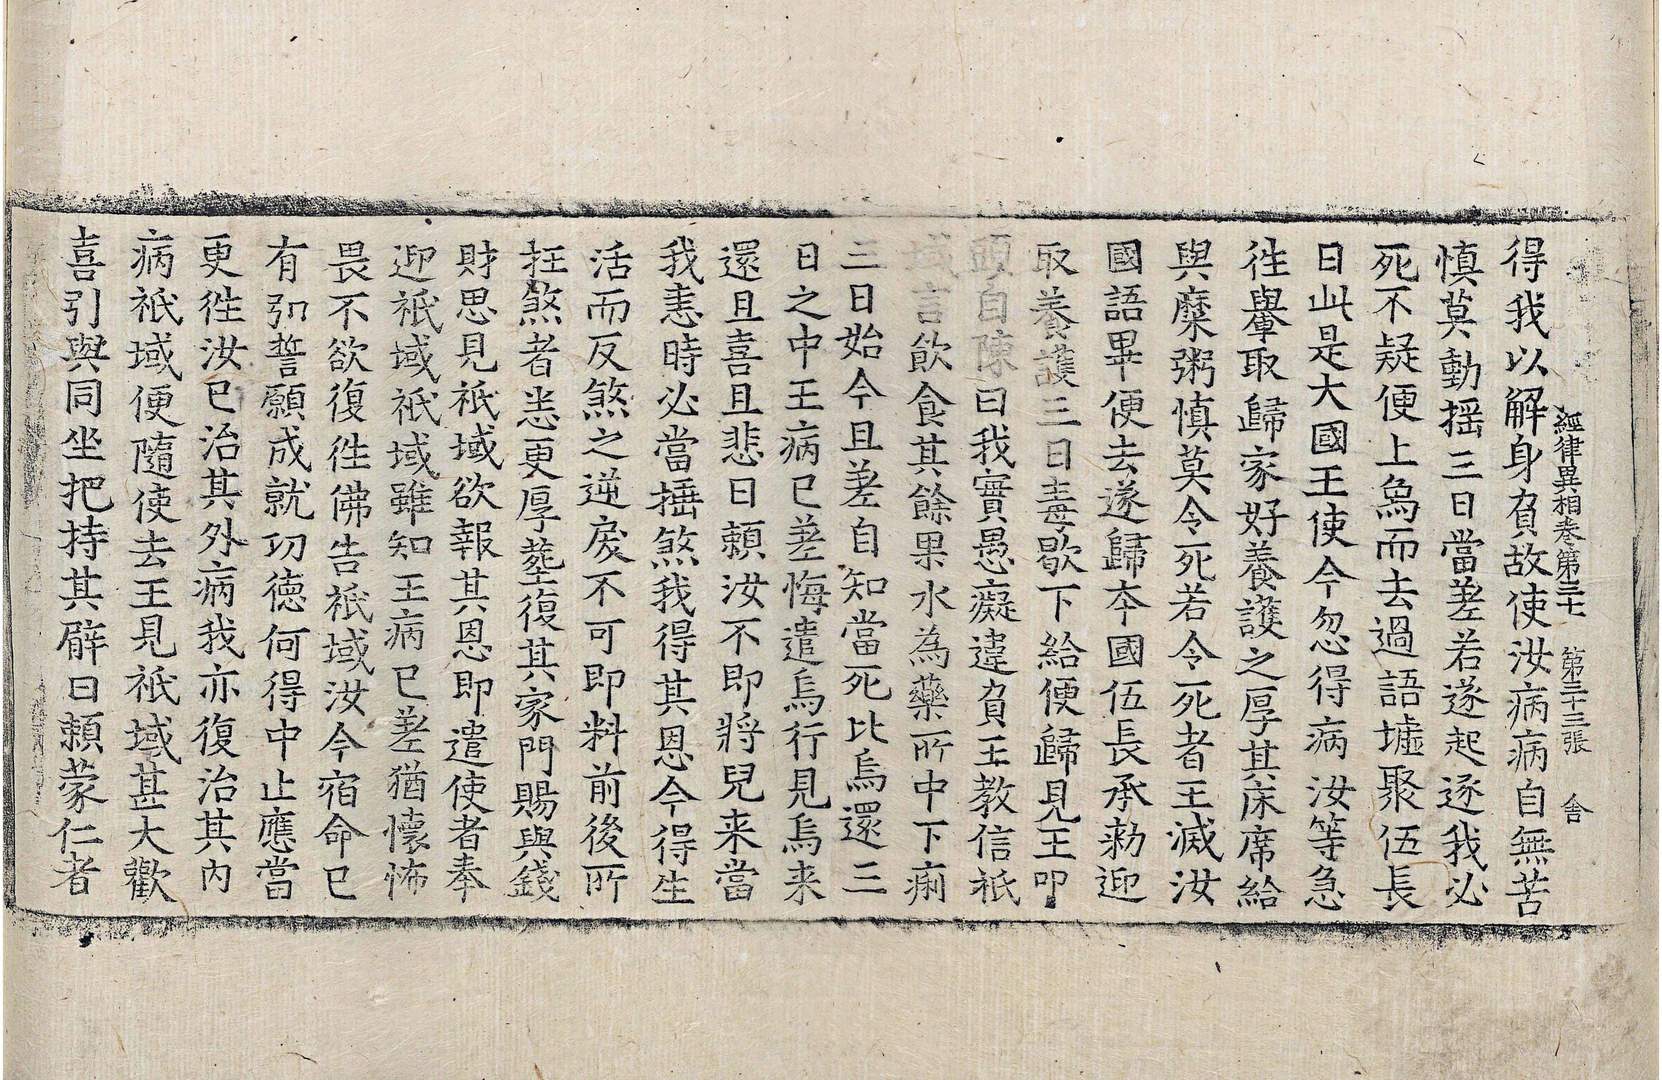 經律異相卷第三十 第三十三張 舍
得我以解身負故使汝病病自無苦
慎莫動揺三日當差若遂起逐我必
死不疑便上烏而去過語墟聚伍長
日此是大國王使今忽得病汝等急
徃轝取歸家好養護之厚其床席給
與糜粥慎莫令死若令死者王滅汝
國語畢便去遂歸夲國伍長承勑迎
取養護三日毒歇下給便歸見王叩
頭自陳曰我實愚癡違負王教信祇
域言飲食其餘果水為藥所中下痢
三日始今且差自知當死比烏還三
日之中王病已差悔遣烏行見烏来
還且喜且悲曰頼汝不即將兒来當
我恚時必當捶煞我得其恩今得生
活而反煞之逆戾不可即料前後所
抂煞者悉更厚塟復其家門賜與錢
財思見祇域欲報其恩即遣使者奉
迎祇域祇域雖知王病已差猶懷怖
畏不欲復徃佛告祇域汝今宿命已
有弘誓願成就功徳何得中止應當
更徃汝已治其外病我亦復治其内
病祇域便隨使去王見祇域甚大歡
喜引與同坐把持其臂曰頼蒙仁者